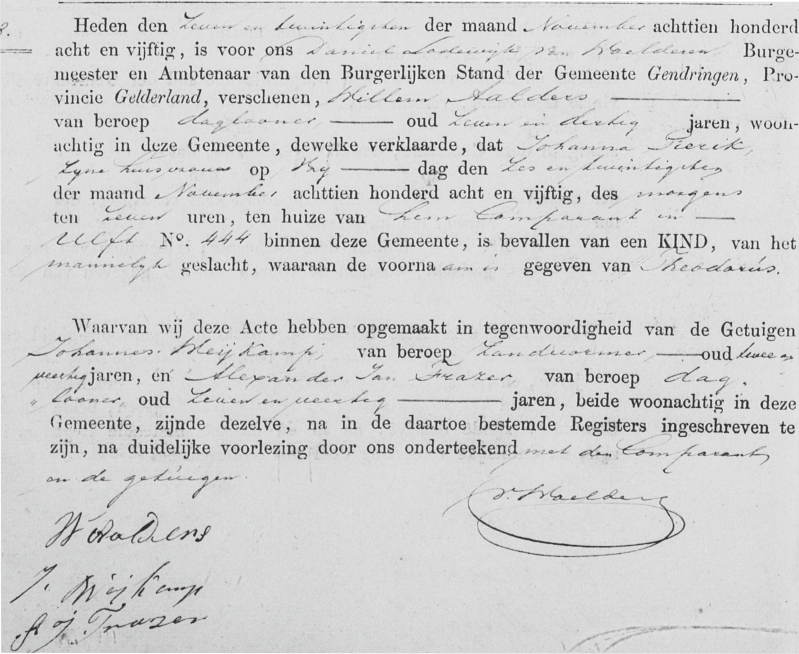 Heden den zeven en twintigsten der maand November achttien honderd
acht en vijftig, is voor ons Daniel Lodewijk van Woelderen Burge-
meester en Ambtenaar van den Burgerlijken Stand der Gemeente Gendringen, Pro-
vincie Gelderland, verschenen, Willem Aalders
van beroep daglooner oud zeven en dertig jaren, woon-
achtig in deze Gemeente, dewelke verklaarde, dat Johanna
zyne huisvrouw op Vry dag den zes en twintigsten
der maand November achttien honderd acht en vijftig, des morgens
ten zeven uren, ten huize van hem Comparant in
Ulft No. 444 binnen deze Gemeente, is bevallen van een KIND, van het
mannelyk geslacht, waaraan de voornaam is gegeven van Theodorus.
Waarvan wij deze Acte hebben opgemaakt in tegenwoordigheid van de Getuigen
Johannes Meijkamp, van beroep oud twee en
veertig jaren, en Alexander Jan Frazer, van beroep dag-
looner, oud zeven en veertig jaren, beide woonachtig in deze
Gemeente, zijnde dezelve, na in de daartoe bestemde Registers ingeschreven te
zijn, na duidelijke voorlezing door ons onderteekend met den Comparant
en de getuigen.
v. Woelderen
W Aalders
J. Meijkamp
A J Frazer